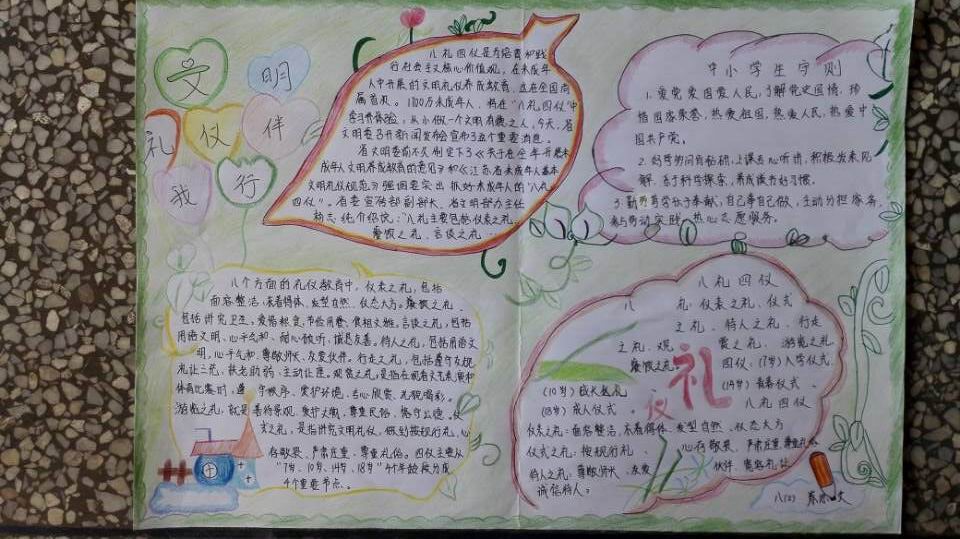 文 明
礼 仪 伴
我 行
八礼四仪是为培育和践
行社会主义核心价值观，在未成年
人中开展的文明礼仪养成教育，这在全国尚
属首次。1100万未成年人，将在“八礼四仪”中
学习和体验，从小做一个文明有礼之人，今天，省
文明委召开新闻发布会宣布了这个重要消息。
省文明委前不久制定下了《关于在全年开展未
成年人文明养成教育的意见》和《江苏省未成年人基本
文明礼仪规范》强调要突出抓好未成年人的“八礼
四仪”。省委宣传部副部长、省文明办主任
介绍说：“八礼主要包括仪表之礼、
餐饮之礼、言谈之礼……
中小学生守则
1. 爱党爱国爱人民，了解党史国情，珍
惜国家荣誉，热爱祖国，热爱人民，热爱中
国共产党。
2. 好学多问肯钻研，上课专心听讲，积极发表见
解，乐于科学探索，养成读书好习惯。
3. 勤劳笃学乐于奉献，自己事自己做，主动分担家务，
参与劳动实践，热心志愿服务。
八个方面的礼仪教育中，仪表之礼，包括
面容整洁，衣着得体，发型自然，仪态大方。餐饮之礼
包括讲究卫生，爱惜粮食，节俭用餐，食相文雅。言谈之礼，包括
用语文明，心平气和，耐心倾听，诚恳友善。待人之礼，包括用语文
明，心平气和，尊敬师长，友爱伙伴。行走之礼，包括遵守交规
礼让三先，扶老助弱，主动让座。观赏之礼，是指在观看文艺表演和
体育比赛时，遵守秩序、爱护环境、专心欣赏、礼貌喝彩。
游览之礼，就是善待景观，爱护文物，尊重民俗，恪守公德。仪
式之礼，是指讲究文明礼仪，做到按规行礼，心
存敬畏，严肃庄重，尊重礼俗。四仪主要从
“7岁、10岁、14岁、18岁”4个年龄段为成
4个重要节点。
八礼四仪
八 礼：仪表之礼、仪式
之礼、待人之礼、行走
之礼、观 赏之礼、游览之礼、
餐饮之礼。 四仪：(7岁)入学仪式
礼 仪
(10岁)成长仪式 、 (14岁)青春仪式 、
(18岁)成人仪式 。 八礼四仪
仪表之礼：面容整洁、衣着得体、发型自然、仪态大方
仪式之礼：按规行礼、 心存敬畏、严肃庄重、尊重礼俗
待人之礼：尊敬师长、友爱 伙伴、宽容礼让
诚信待人。
八(2)